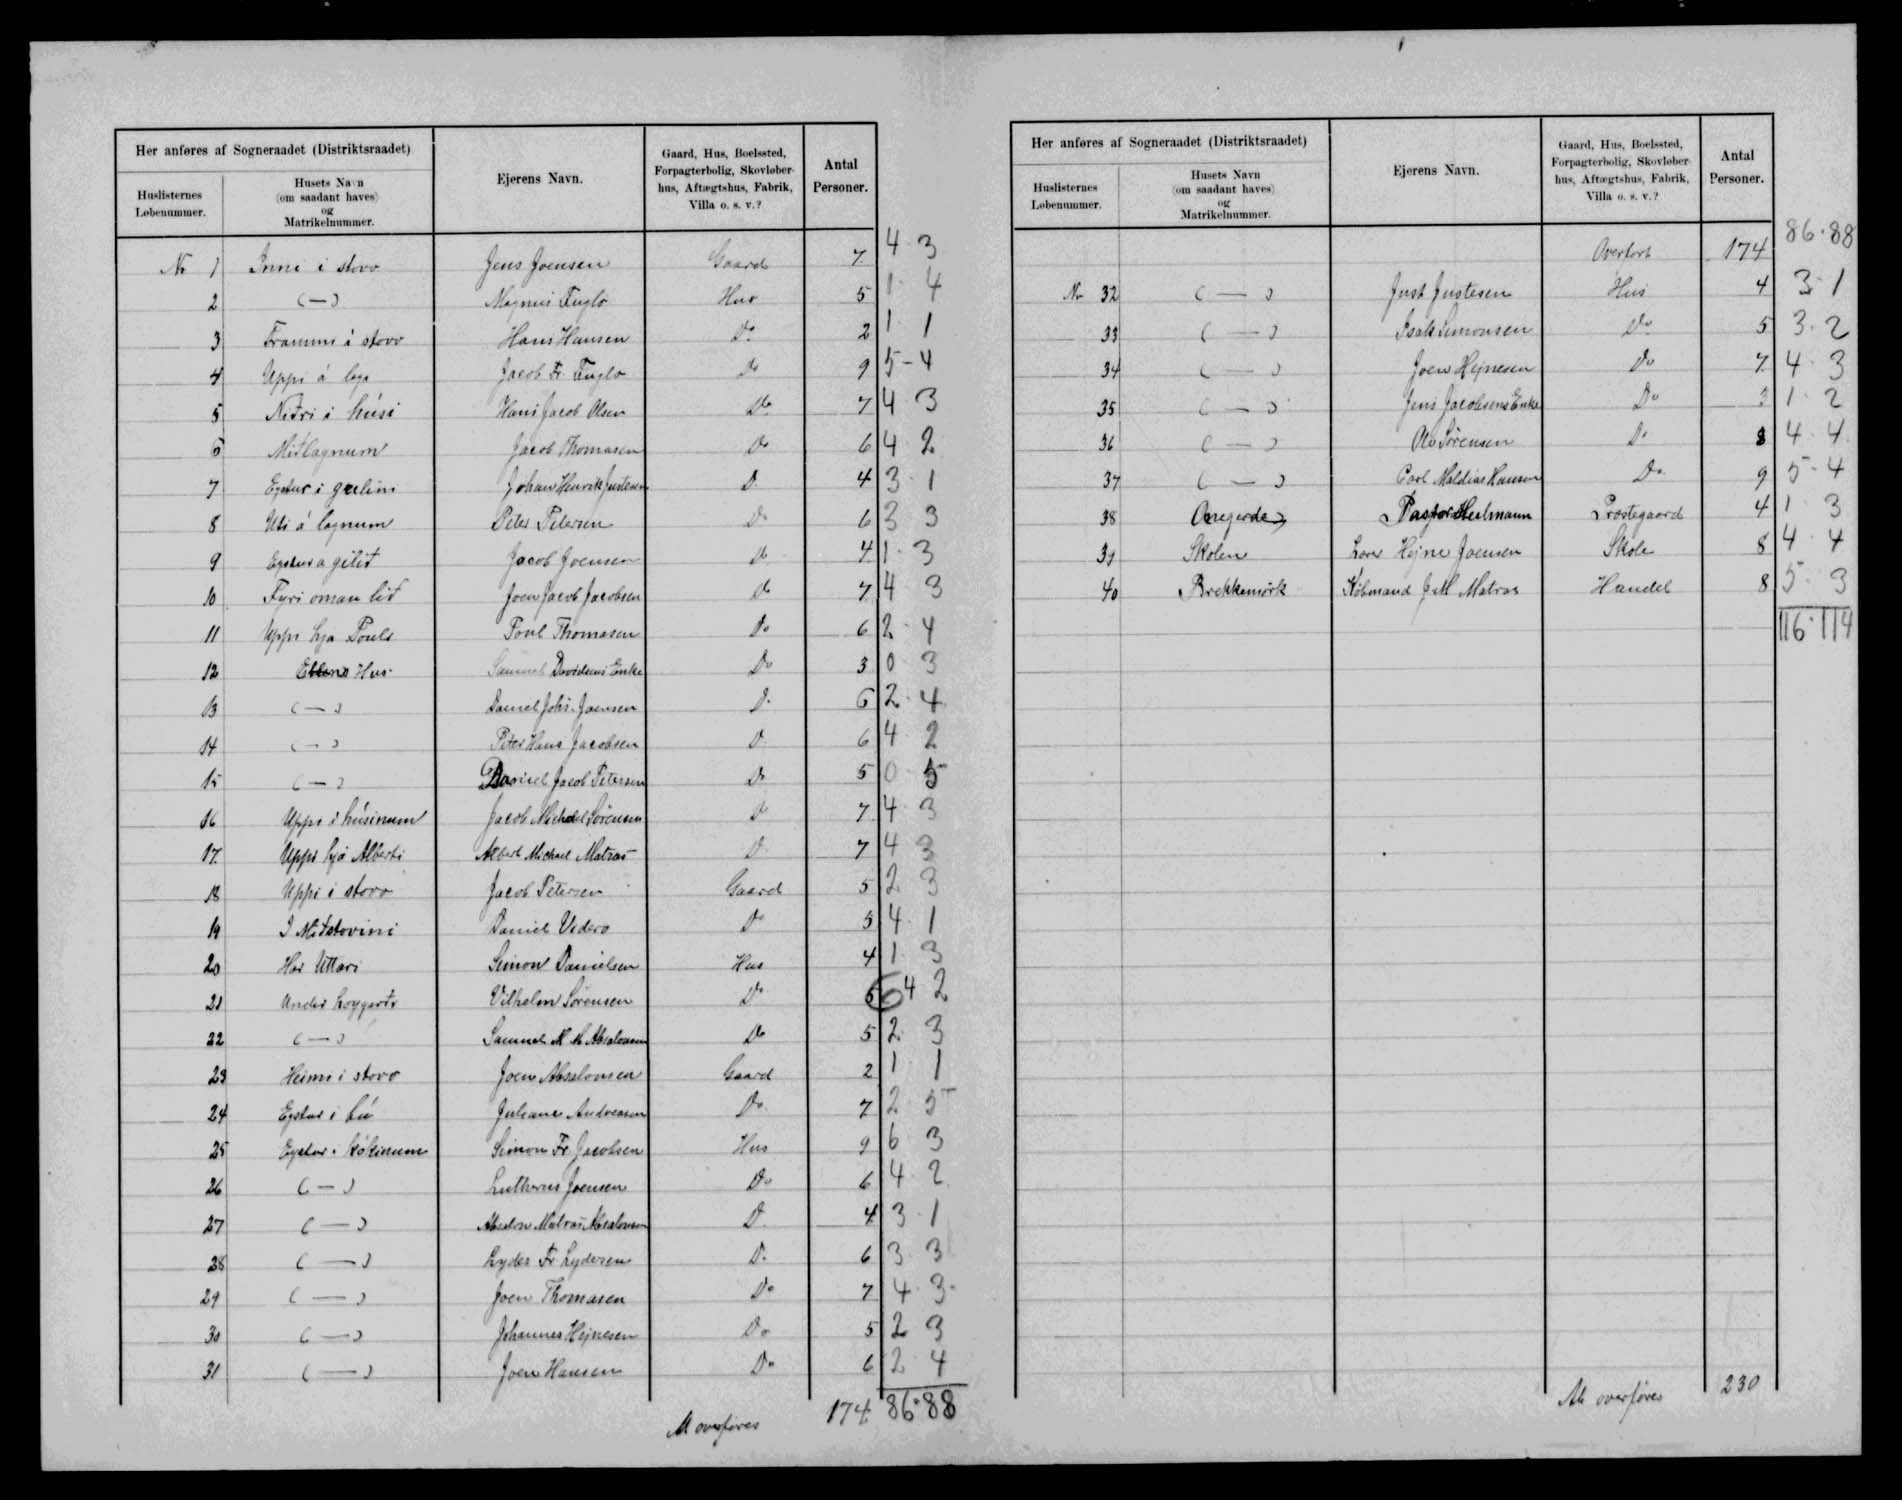 Her anføres af Sogneraadet (Distriktsraadet)
Huslisternes Løbenummer.
Husets Navn (om saadant haves) og Matrikelnummer.
Ejerens Navn.
Gaard, Hus, Boelssted, Forpagterbolig, Skovløberhus, Aftægtshus, Fabrik, Villa o. s. v.?
Antal Personer.
No 1 Inni i stovo Jens Joensen Gaard 7 4 · 3
2 ( — ) Magnus Fuglø Hus 5 1 · 4
3 Frammi i stovo Hans Hansen Do 2 1 · 1
4 Uppi á lega Jacob Fr. Fuglø Do 9 5 - 4
5 Niðri i húsi Hans Jacob Olsen Do 7 4 · 3
6 Miðlagnum Jacob Thomasen Do 6 4 · 2
7 Eystur i grelini Johan Henrik Justesen Do 4 3 · 1
8 Uti á lagnum Peter Petersen Do 6 3 3
9 Eystur a gilið Jacob Joensen do 4 1 · 3
10 Fyri oman lið Joen Jacob Jacobsen do 7 4 3
11 Uppi hja Pouls Poul Thomasen Do 6 2 · 4
12 Hus Samuel Davidsens Enke Do 3 0 3
13 ( — ) Daniel Johs. Joensen D. 6 2 · 4
14 ( — ) Peter Hans Jacobsen D. 6 4 · 2
15 ( — ) Daniel Jacob Petersen Do 5 0 5
16 Uppi i húsinum Jacob Michael Sørensen Do 7 4 · 3
17. Uppi hjá Alberti Albert Michael Matras D. 7 4 3
18 Uppi i stovo Jacob Petersen Gaard 5 2 3
19 I Miðstovini Daniel Viderø Do 5 4 · 1
20 Har Uttari Simon Danielsen Hus 4 1 · 3
21 Under hoygarði Vilhelm Sørensen Do 6 4 2
22 ( — ) Samuel M Absalonsen Do 5 2 · 3
23 Heimi i stovo Joen Absalonsen Gaard 2 1 1
24 Eystur i bú Juliane Andreasen Do 7 2 · 5
25 Eystur i kókinum Simon Fr. Jacobsen Hus 9 6 3
26 ( — ) Lutherus Joensen Do 6 4 · 2
27 ( — ) Absalon Matras Absalonsen D. 4 3 · 1
28 ( — ) Lyder Fr Lydersen D. 6 3 · 3
29 ( — ) Joen Thomasen Do 7 4 · 3
30 ( — ) Johannes Hejnesen Do 5 2 3
31 ( — ) Joen Hansen Do 6 2 4
At overføres 174 86 · 88
Her anføres af Sogneraadet (Distriktsraadet)
Huslisternes Løbenummer.
Husets Navn (om saadant haves) og Matrikelnummer.
Ejerens Navn.
Gaard, Hus, Boelssted, Forpagterbolig, Skovløberhus, Aftægtshus, Fabrik, Villa o. s. v.?
Antal Personer.
Overført 174 86 · 88
No 32 ( — ) Just Justesen Hus 4 3 · 1
33 ( — ) Isak Simonsen Do 5 3 · 2
34 ( — ) Joen Hejnesen Do 7 4 · 3
35 ( — ) Jens Jacobsens Enke Do 3 1 · 2
36 ( — ) Ole Sørensen Do 8 4 · 4
37 ( — ) Carl Maldias Hansen Do 9 5 - 4
38 Onagerde Pastor Heilmann Præstegaard 4 1 · 3
39 Skolen Lærer Hejne Joensen Skole 8 4 · 4
40 Brekkemørk Købmand Matras Handel 8 5 · 3
116 · 114
At overføres 230